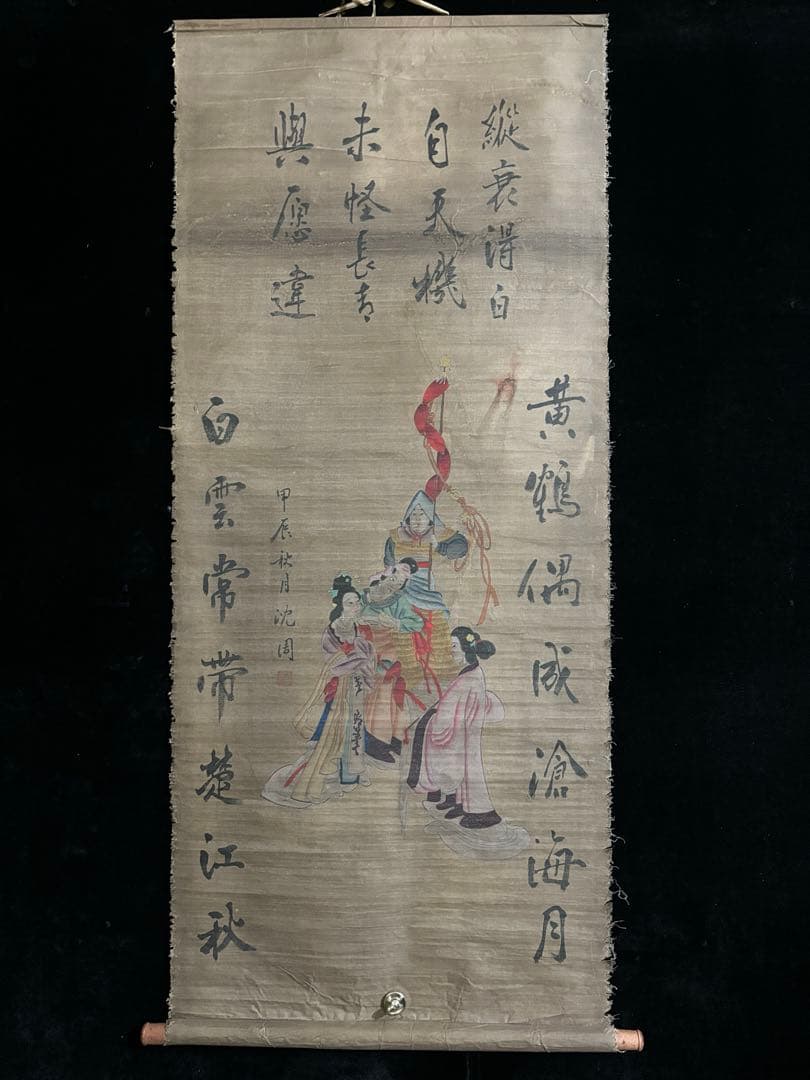 縱衰得白
自天機
未怪長青
與愿違
黄鶴偶成滄海月
白雲常带楚江秋
甲辰秋月沈周